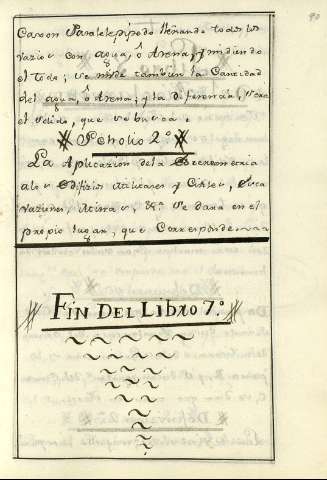 90
Caxon Paralelepipedo llenando todos los
vazios con agua, ô Arena, y midiendo
el todo; se mide tambien la Cantidad
del agua, ô Arena; y la diferencia, sera
el solido, que se busca.
Scholio 2º
La Aplicazion dela Stereometria
alos Edifizios Militares y Civiles, Esca
vaziones, &ª se dara en el
propio lugar, que Corresponde
FIN DEL LIBRO 7.º